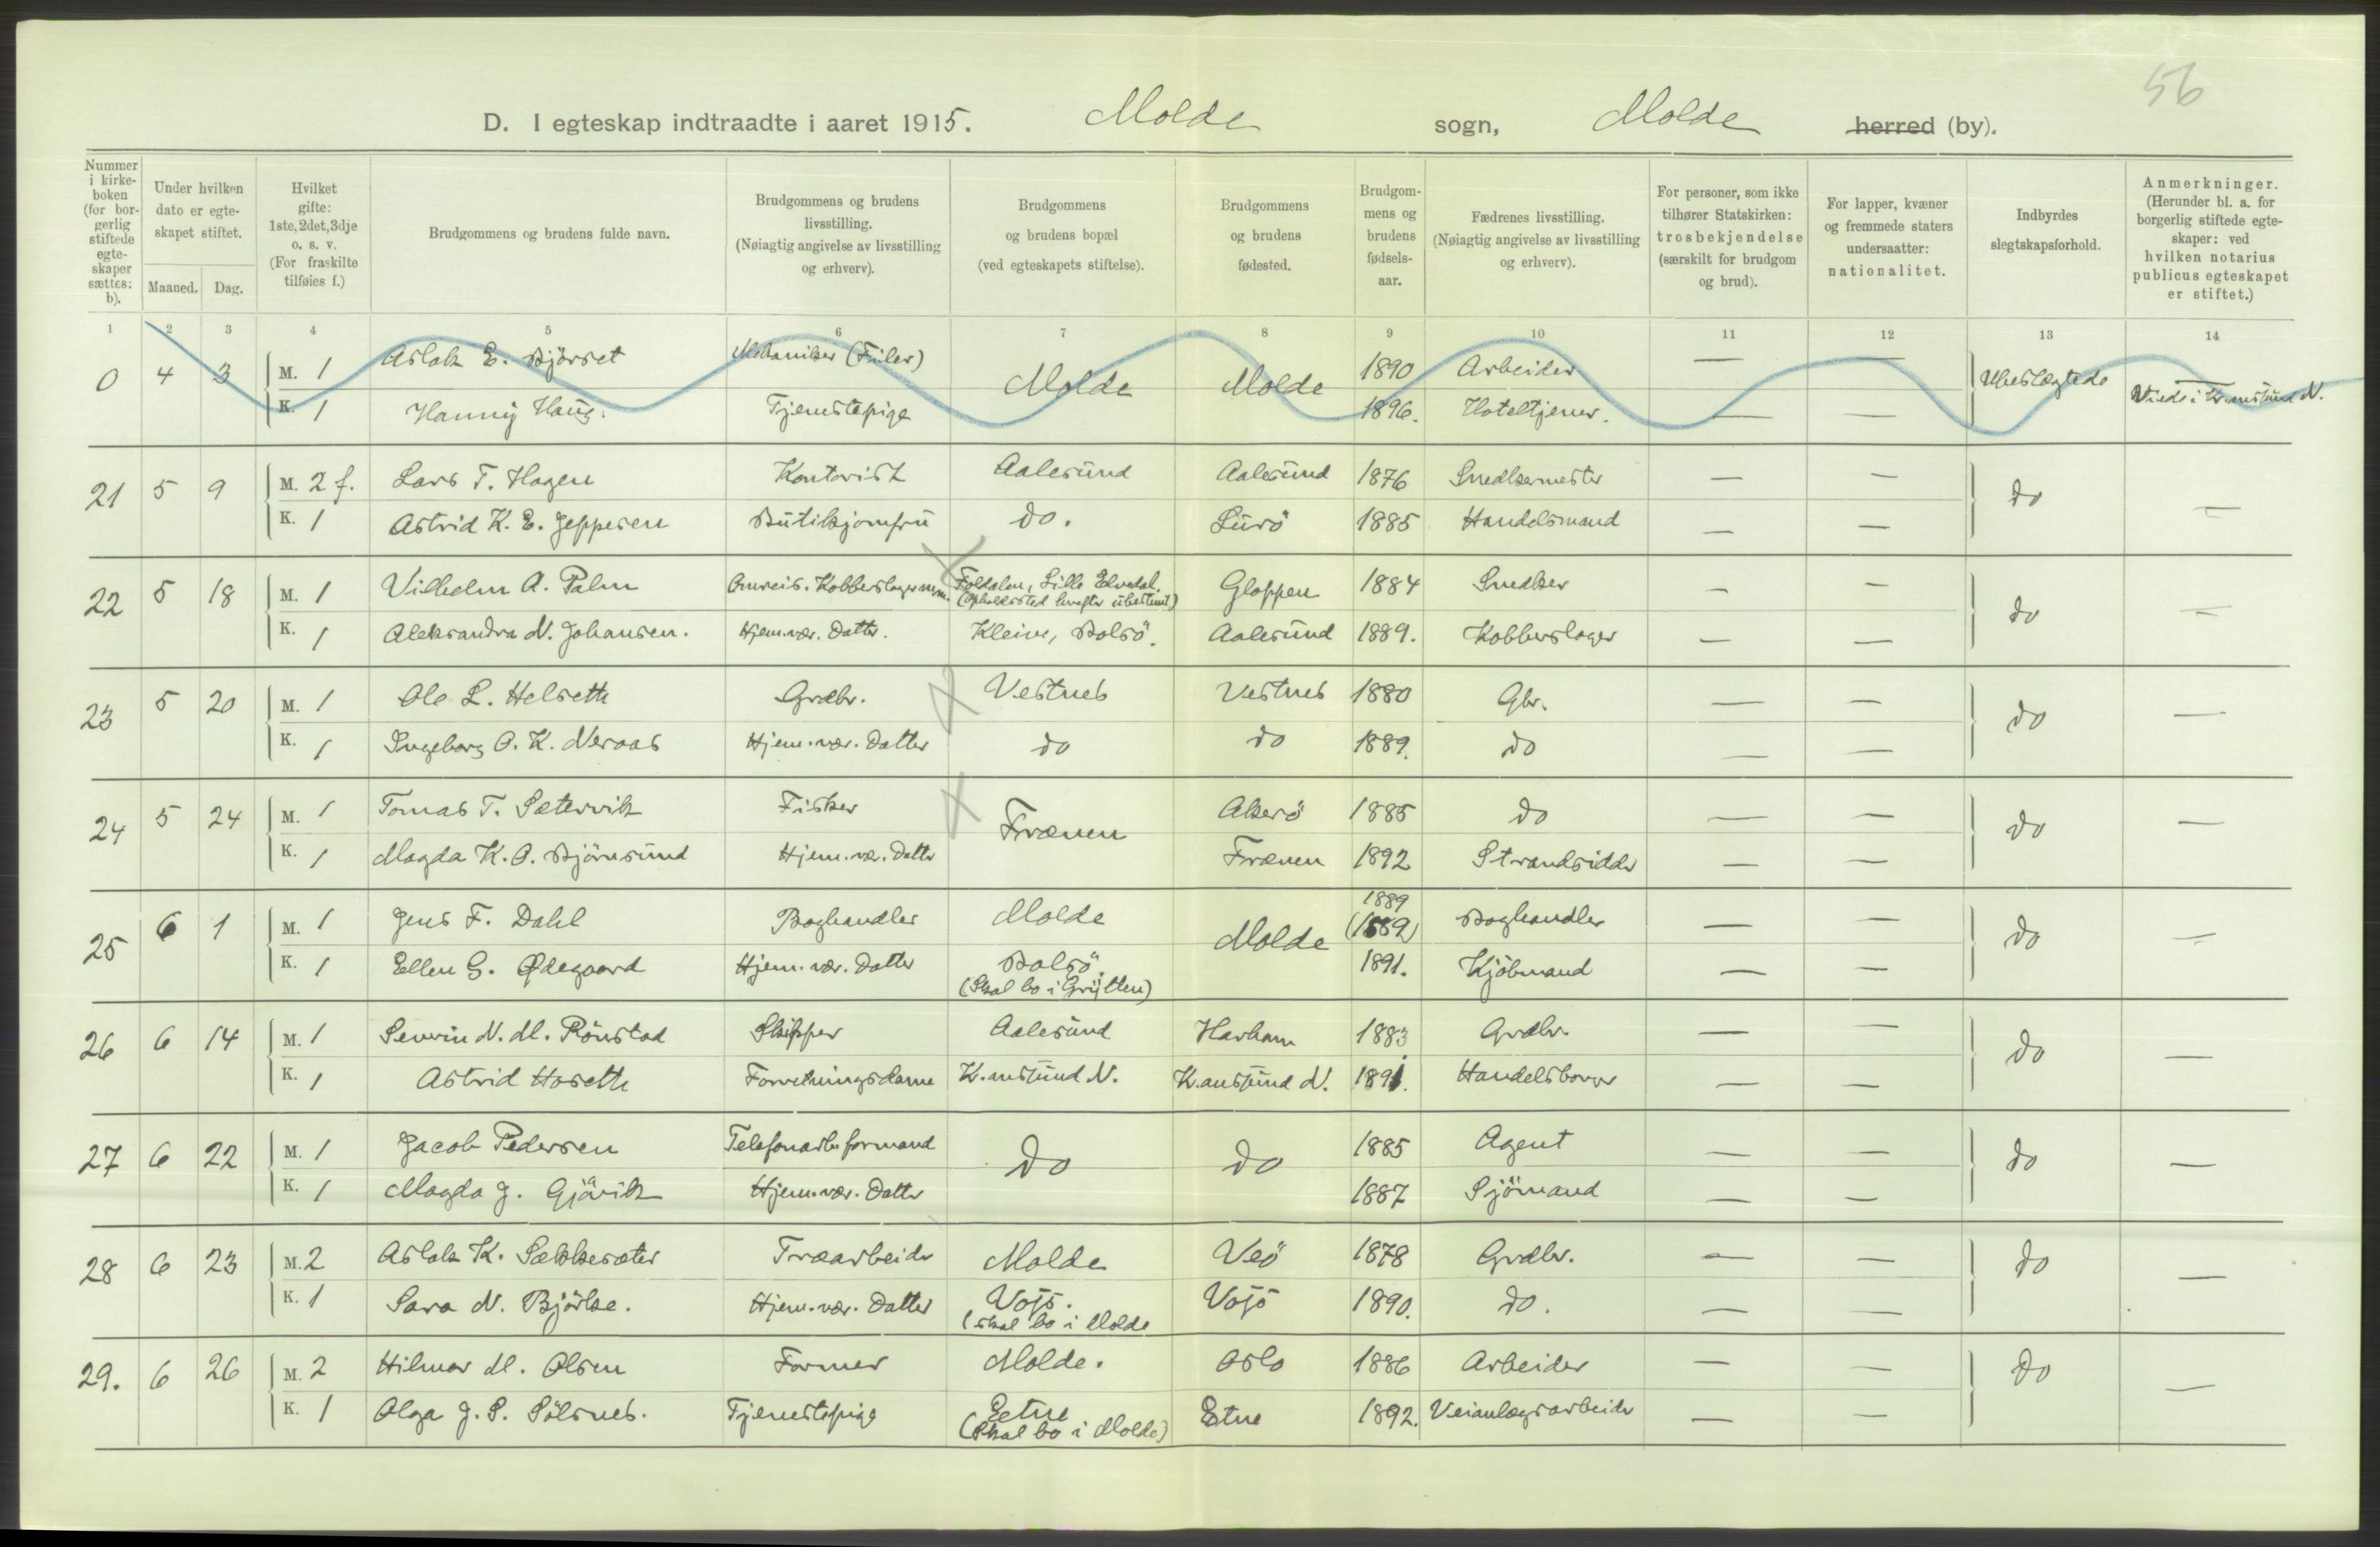 56
D. I egteskap indtraadte i aaret 1915. Molde sogn, Molde herred (by).
Nummer i kirkeboken (for borgerlig stiftede egteskaper sættes: b).
Under hvilken dato er egteskapet stiftet.
Maaned. Dag.
Hvilket gifte: 1ste, 2det, 3dje o. s. v. (For fraskilte tilføies f.)
Brudgommens og brudens fulde navn.
Brudgommens og brudens livsstilling. (Nøiagtig angivelse av livsstilling og erhverv).
Brudgommens og brudens bopæl (ved egteskapets stiftelse).
Brudgommens og brudens fødested.
Brudgommens og brudens fødselsaar.
Fædrenes livsstilling. (Nøiagtig angivelse av livsstilling og erhverv).
For personer, som ikke tilhører Statskirken: trosbekjendelse (særskilt for brudgom og brud).
For lapper, kvæner og fremmede staters undersaatter: nationalitet.
Indbyrdes slegtskapsforhold.
Anmerkninger. (Herunder bl. a. for borgerlig stiftede egteskaper: ved hvilken notarius publicus egteskapet er stiftet.)
1 2 3 4 5 6 7 8 9 10 11 12 13 14
0 4 3 M. 1 Aslak E. Björset Mekaniker (Filer) Molde Molde 1890 Arbeider — — Ubeslægtede Viede i Kr.ansund N.
K. 1 Hanny Haug. Tjenestepige 1896. Hoteltjener. — —
21 5 9 M. 2 f. Lars T. Hagen Kontorist Aalesund Aalesund 1876 Snedkermester — — do —
K. 1 Astrid K. E. Jeppesen Butikjomfru do. Lurö 1885 Handelsmand — —
22 5 18 M. 1 Vilhelm A. Palm Omreis. Kobberslager Foldalen, Lille Elvedal. (Opholdssted herefter ubestemt) Gloppen 1884 Snedker — — do —
K. 1 Aleksandra N. Johansen. Hjem.vær. Datter. Kleive, Bolsö. Aalesund 1889. Kobberslager — —
23 5 20 M. 1 Ole L. Helseth Grdbr. Vestnes Vestnes 1880 Gbr. — — do —
K. 1 Ingeborg O. K. Neraas Hjem.vær. Datter do do 1889. do — —
24 5 24 M. 1 Tomas T. Sætervik Fisker Frænen Akerö 1885 do — — do —
K. 1 Magda K. O. Björnsund Hjem.vær. Datter Frænen 1892 Strandsidder — —
25 6 1 M. 1 Jens F. Dahl Boghandler Molde Molde 1889 (1889) Boghandler — — do —
K. 1 Ellen G. Ødegaard Hjem.vær. Datter Bolsö (Skal bo i Grytten) 1891. Kjöbmand — —
26 6 14 M. 1 Severin N. M. Rönstad Skipper Aalesund Harham 1883 Grdbr. — — do —
K. 1 Astrid Hoseth Forretningsdame K.ansund N. K.ansund N. 1891. Handelsborger — —
27 6 22 M. 1 Jacob Pedersen Telefonarb. formand do do 1885 Agent — — do —
K. 1 Magda J. Gjövik Hjem.vær. Datter 1887 Sjömand — —
28 6 23 M. 2 Aslak K. Sækkesæter Træarbeider Molde Veö 1878 Grdbr. — — do —
K. 1 Sara N. Björke. Hjem.vær. Datter Voss. (skal bo i Molde Voss 1890. do. — —
29. 6 26 M. 2 Hilmar M. Olsen Former Molde. Oslo 1886 Arbeider — — do —
K. 1 Olga J. S. Sölsnes. Tjenestepige Etne (Skal bo i Molde) Etne 1892. Veianlægsarbeider — —